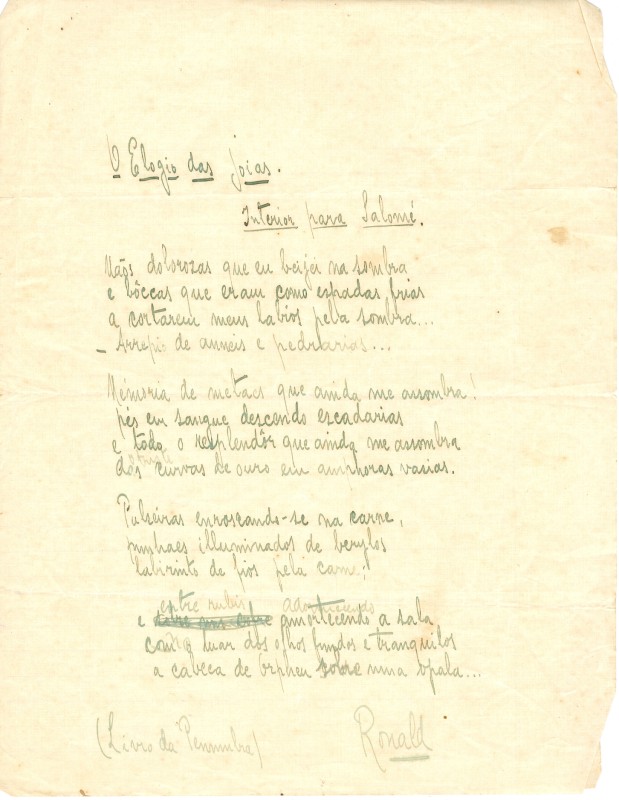 O Elogio das Joias.
Interior para Salomé.
Mãos dolorozas que eu beijei na sombra
e bôccas que eram como espadas frias
a cortarem meus labios pela sombra...
– Arrepio de anneis e pedrarias...
Memoria de metaes que ainda me assombra!
pés em sangue descendo escadarias
e todo o resplendôr que ainda me assombra
das curvas de ouro em amphoras vasias.
Pulseiras enroscando-se na carne,
punhaes illuminados de beryllos
labirinto de fios pela carne,
entre rubis
e amortecendo a sala
com o luar dos olhos fundos e tranquilos
a cabeca de Orpheu sobre uma opala...
(Livro da Penumbra) Ronald